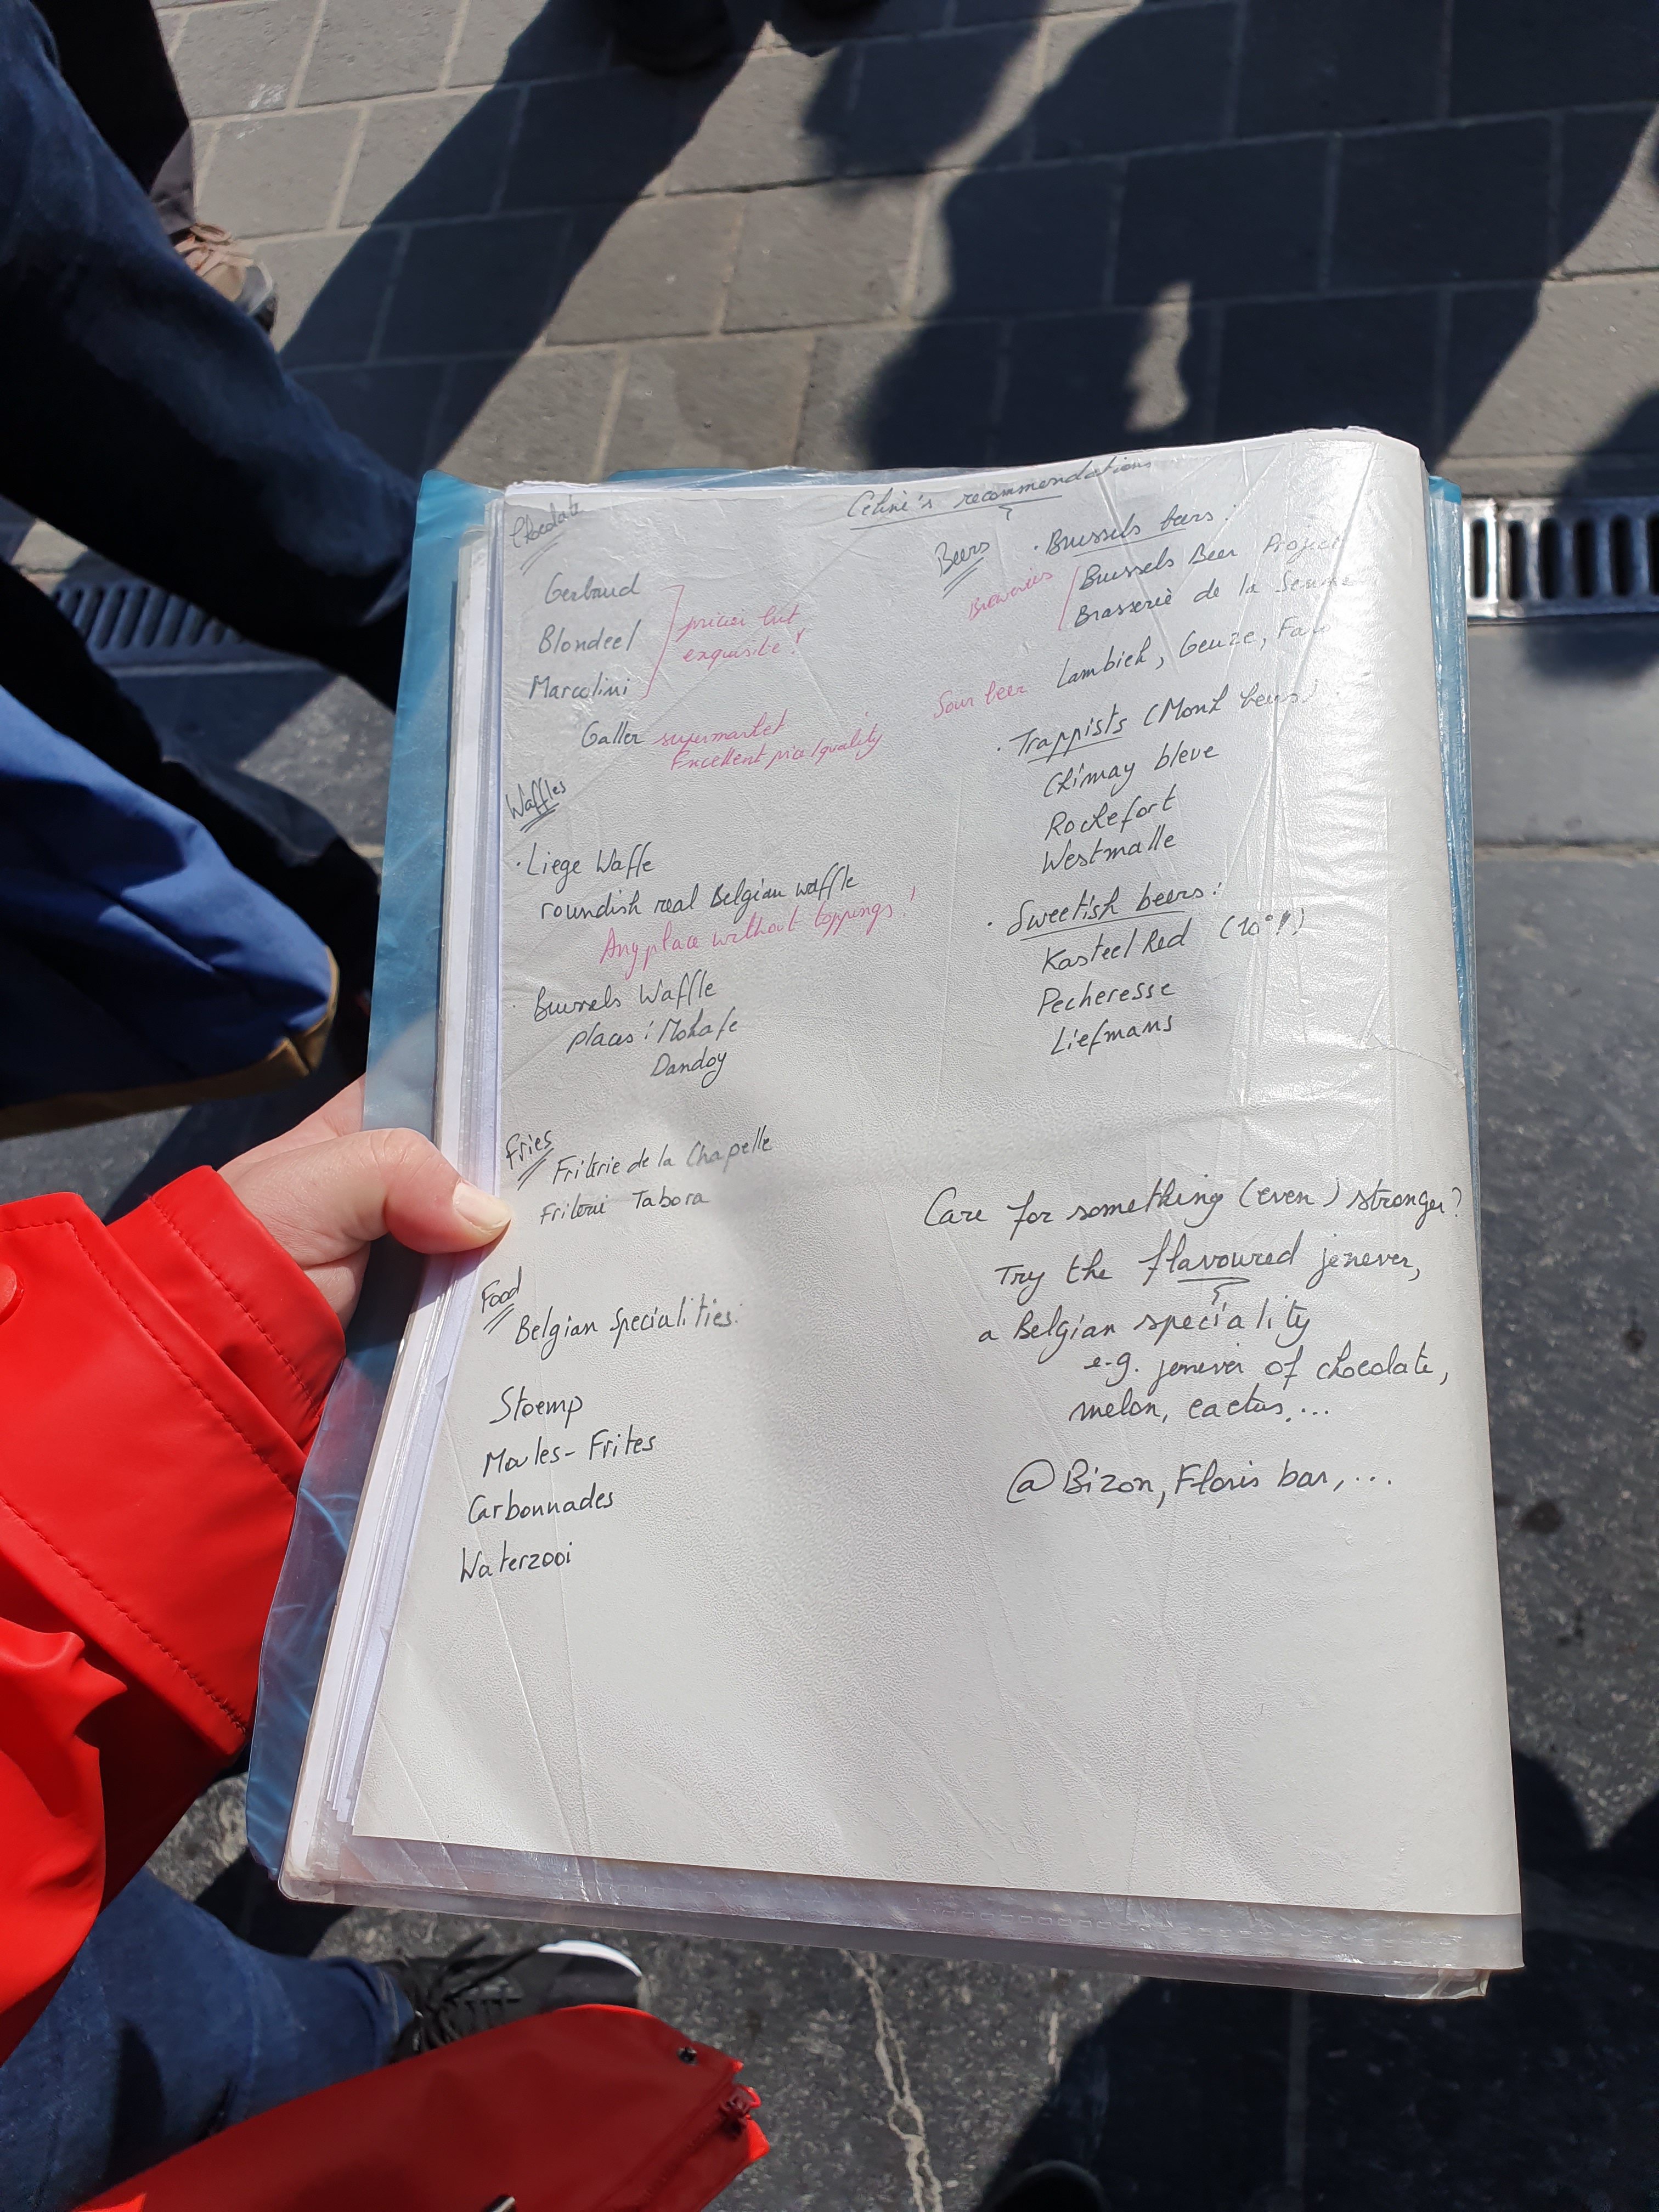 Celine's recommendations
Chocolate
Gerbaud
Blondeel
Marcolini
pricier but
exquisite!
Galler supermarket
Excellent price/quality
Waffles
· Liege Waffle
roundish real Belgian waffle
Any place without toppings!
· Brussels Waffle
places: Mokafe
Dandoy
Fries
Friterie de la Chapelle
Friterie Tabora
Food
Belgian Specialities:
Stoemp
Moules-Frites
Carbonnades
Waterzooi
Beers · Brussels beers:
Breweries Brussels Beer Project
Brasserie de la Senne
Sour beer Lambiek, Geuze, Faro
· Trappists (Monk beers)
Chimay bleue
Rochefort
Westmalle
· Sweetish beers:
Kasteel Red
Pecheresse
Liefmans
Care for something (even) stronger?
Try the flavoured jenever,
a Belgian speciality
e.g. jenever of chocolate,
melon, cactus,...
@Bizon, Floris bar, ...